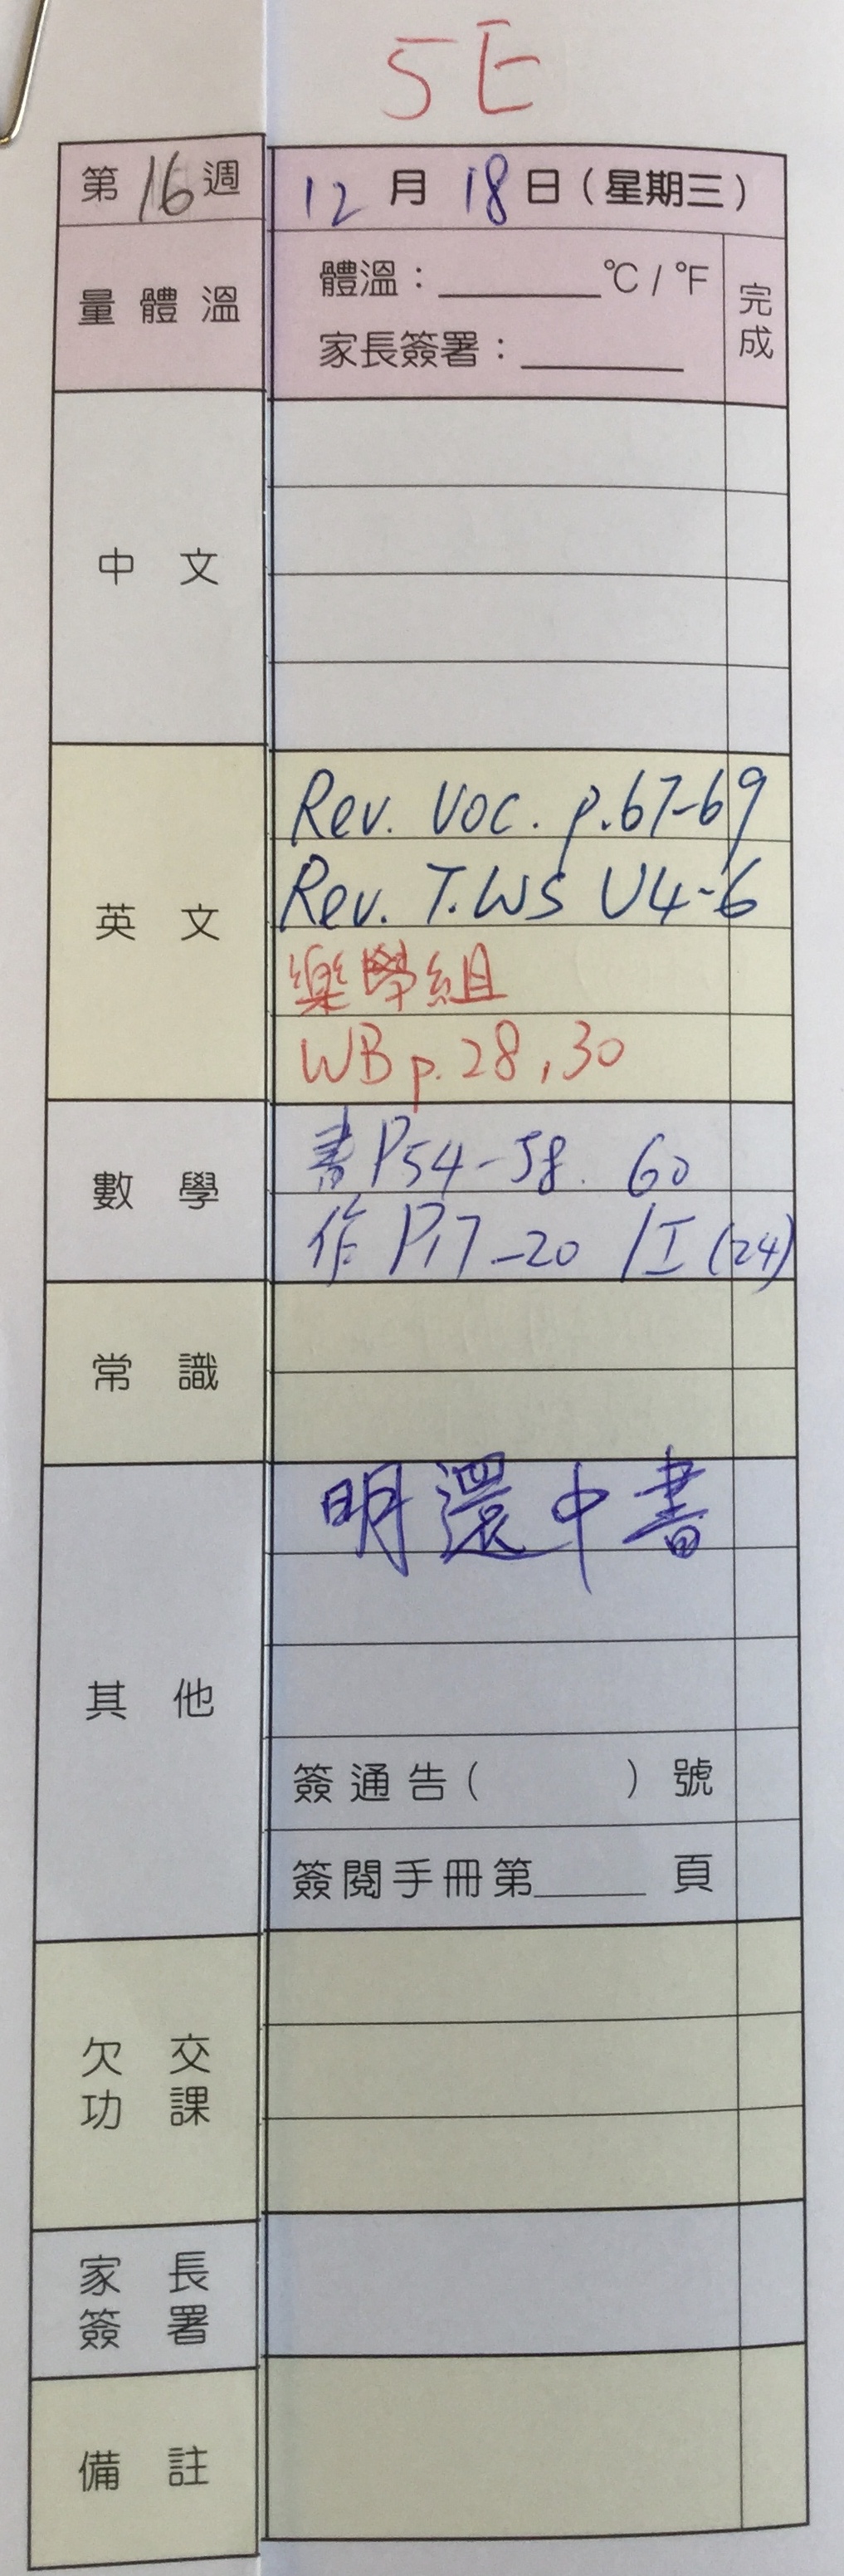 5E
第16週
12月18日(星期三)
量體溫
體溫：______℃/℉
家長簽署：______
完成
中文
英文
Rev. Voc. p.67-69
Rev. T.WS U4-6
樂學組
WB p.28,30
數學
書P54-58. 60
作P17-20 /I(24)
常識
其他
明還中書
簽通告( )號
簽閱手冊第____頁
欠交
功課
家長
簽署
備註